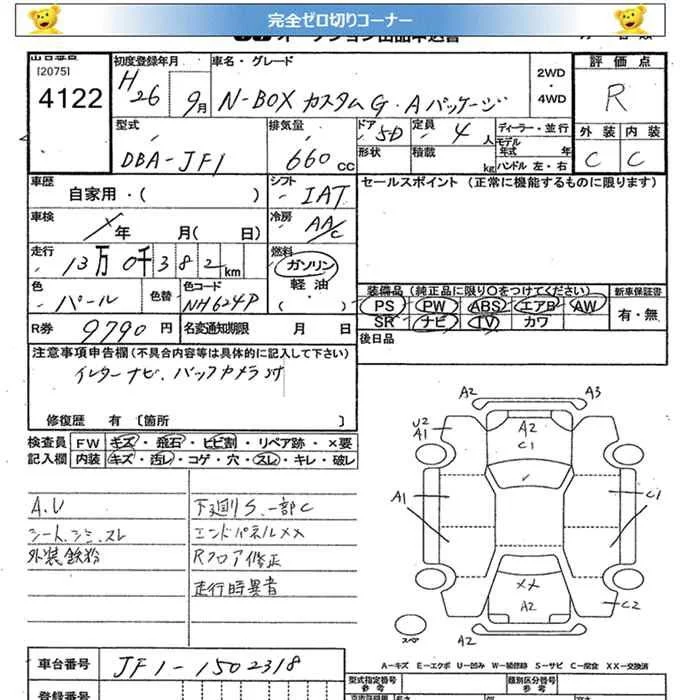 完全ゼロ切りコーナー
[2075]
4122
初度登録年月
H26年 9月
車名・グレード
N-BOX カスタムG・Aパッケージ
2WD・4WD
評価点
R
外装 内装
C C
型式
DBA-JF1
排気量
660 CC
ドア 5D
形状
定員 4人
積載 kg
ディーラー・並行
モデル年式 年
ハンドル 左・右
車歴
自家用・( )
シフト IAT
セールスポイント (正常に機能するものに限ります)
車検
年 月( 日)
冷房 AAC
走行
13万0千382km
燃料
ガソリン
軽油
・( )
色 パール
色替
色コード
NH624P
装備品(純正品に限り○をつけてください)
新車保証書
PS PW ABS エアB AW
SR ナビ TV カワ
有・無
R券 9790円
名変通知期限 月 日
後日品
注意事項申告欄(不具合内容等は具体的に記入して下さい)
インターナビ.バックカメラ付
修復歴 有 [箇所 ]
検査員記入欄
FW キズ・飛石・ヒビ割・リペア跡・×要
内装 キズ・汚レ・コゲ・穴・スレ・キレ・破レ
A.U
シート.シミ.スレ
外装鉄粉
下廻りS.一部C
エンドパネルXX
Rフロア修正
走行時異音
A2 A3
U2
A1
A2
C1
A1 C1
XX
A2
C2
A2
スペ
A－キズ E－エクボ U－凹み W－補修跡 S－サビ C－腐食 XX－交換済
車台番号
JF1-1502318
型式指定番号
参考
類別区分番号
参考
登録番号